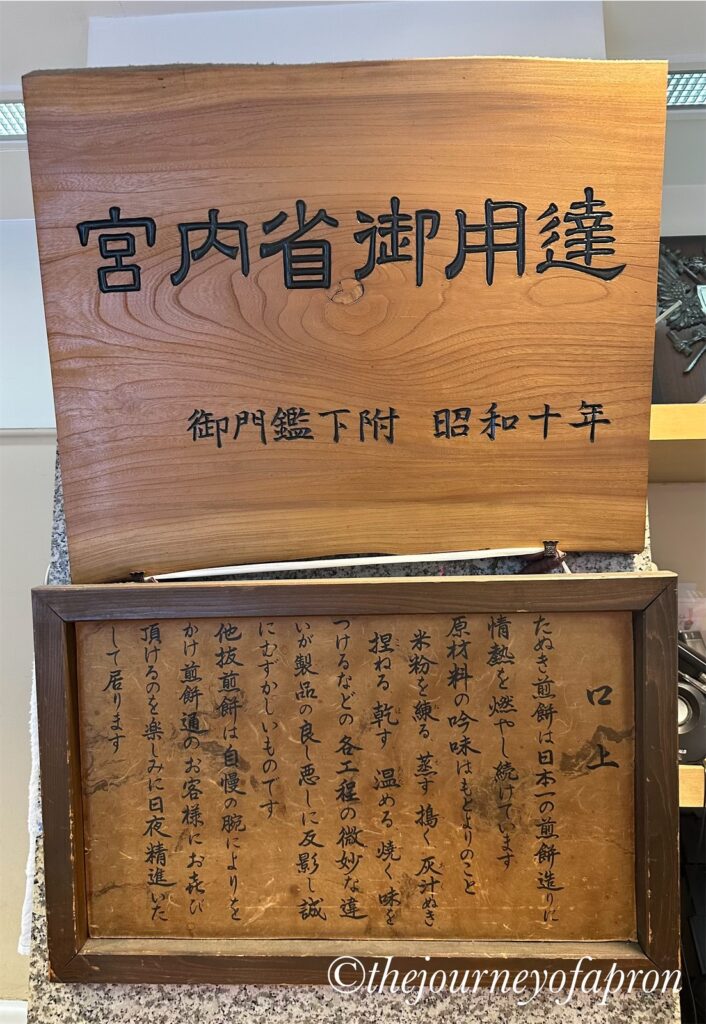 宮内省御用達
御門鑑下附 昭和十年
口上
たぬき煎餅は日本一の煎餅造りに
情熱を燃やし続けています
原材料の吟味はもとよりのこと
米粉を練る 蒸す 搗く 灰汁ぬき
捏ねる 乾す 温める 焼く 味を
つけるなどの各工程の微妙な違
いが製品の良し悪しに反影し誠
にむずかしいものです
他抜煎餅は自慢の腕によりを
かけ煎餅通のお客様にお喜び
頂けるのを楽しみに日夜精進いた
して居ります
©thejourneyofapron